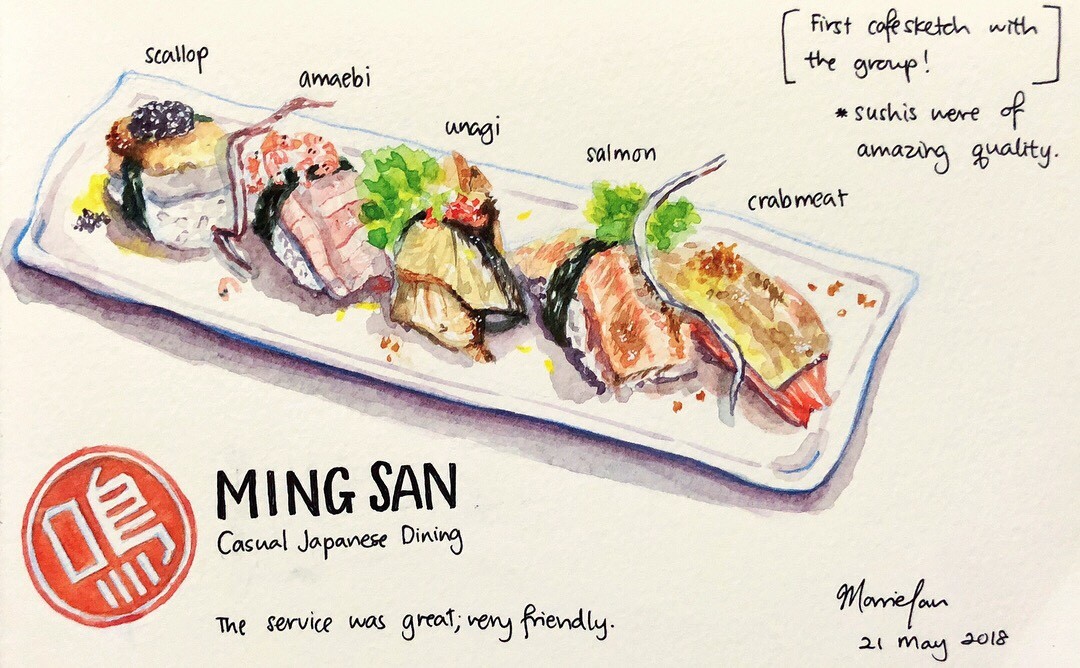 scallop
amaebi
unagi
salmon
crabmeat
[First cafesketch with
the group!]
* sushis were of
amazing quality.
鳴
MING SAN
Casual Japanese Dining
The service was great; very friendly.
21 May 2018